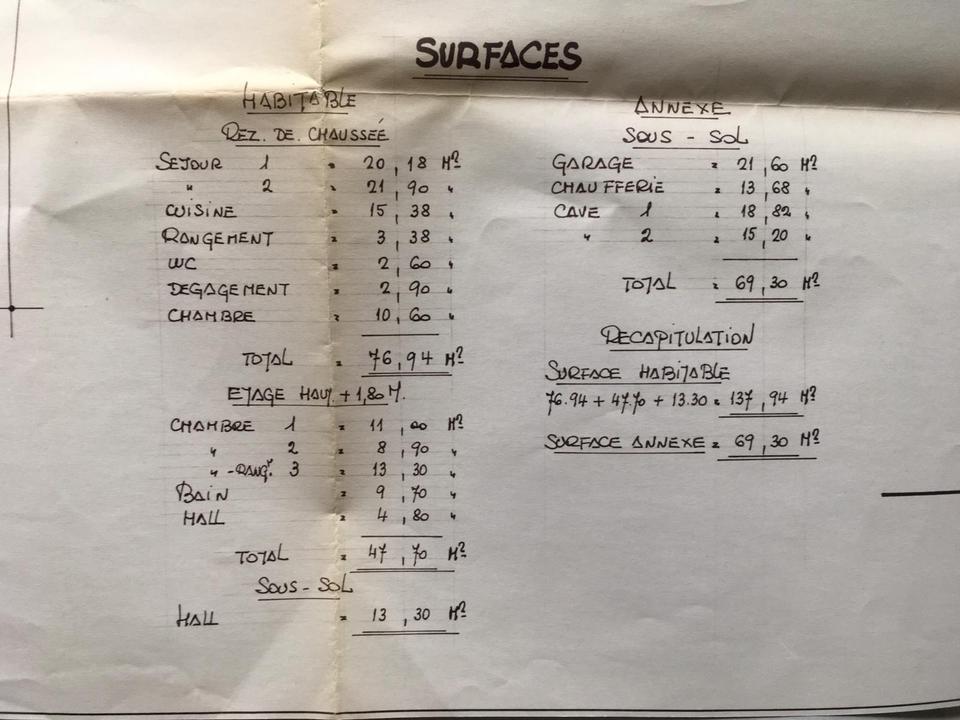 SURFACES
HABITABLE
REZ. DE. CHAUSSEÉ
SEJOUR 1 = 20,18 M²
" 2 = 21,90 "
CUISINE = 15,38 "
RANGEMENT = 3,38 "
WC = 2,60 "
DEGAGEMENT = 2,90 "
CHAMBRE = 10,60 "
TOTAL = 76,94 M²
ETAGE HAUT. + 1,80 M.
CHAMBRE 1 = 11,00 M²
" 2 = 8,90 "
" - RANGT. 3 = 13,30 "
BAIN = 9,70 "
HALL = 4,80 "
TOTAL = 47,70 M²
SOUS - SOL
HALL = 13,30 M²
ANNEXE
SOUS - SOL
GARAGE = 21,60 M²
CHAUFFERIE = 13,68 "
CAVE 1 = 18,82 "
" 2 = 15,20 "
TOTAL = 69,30 M²
RECAPITULATION
SURFACE HABITABLE
76.94 + 47.70 + 13.30 = 137,94 M²
SURFACE ANNEXE = 69,30 M²